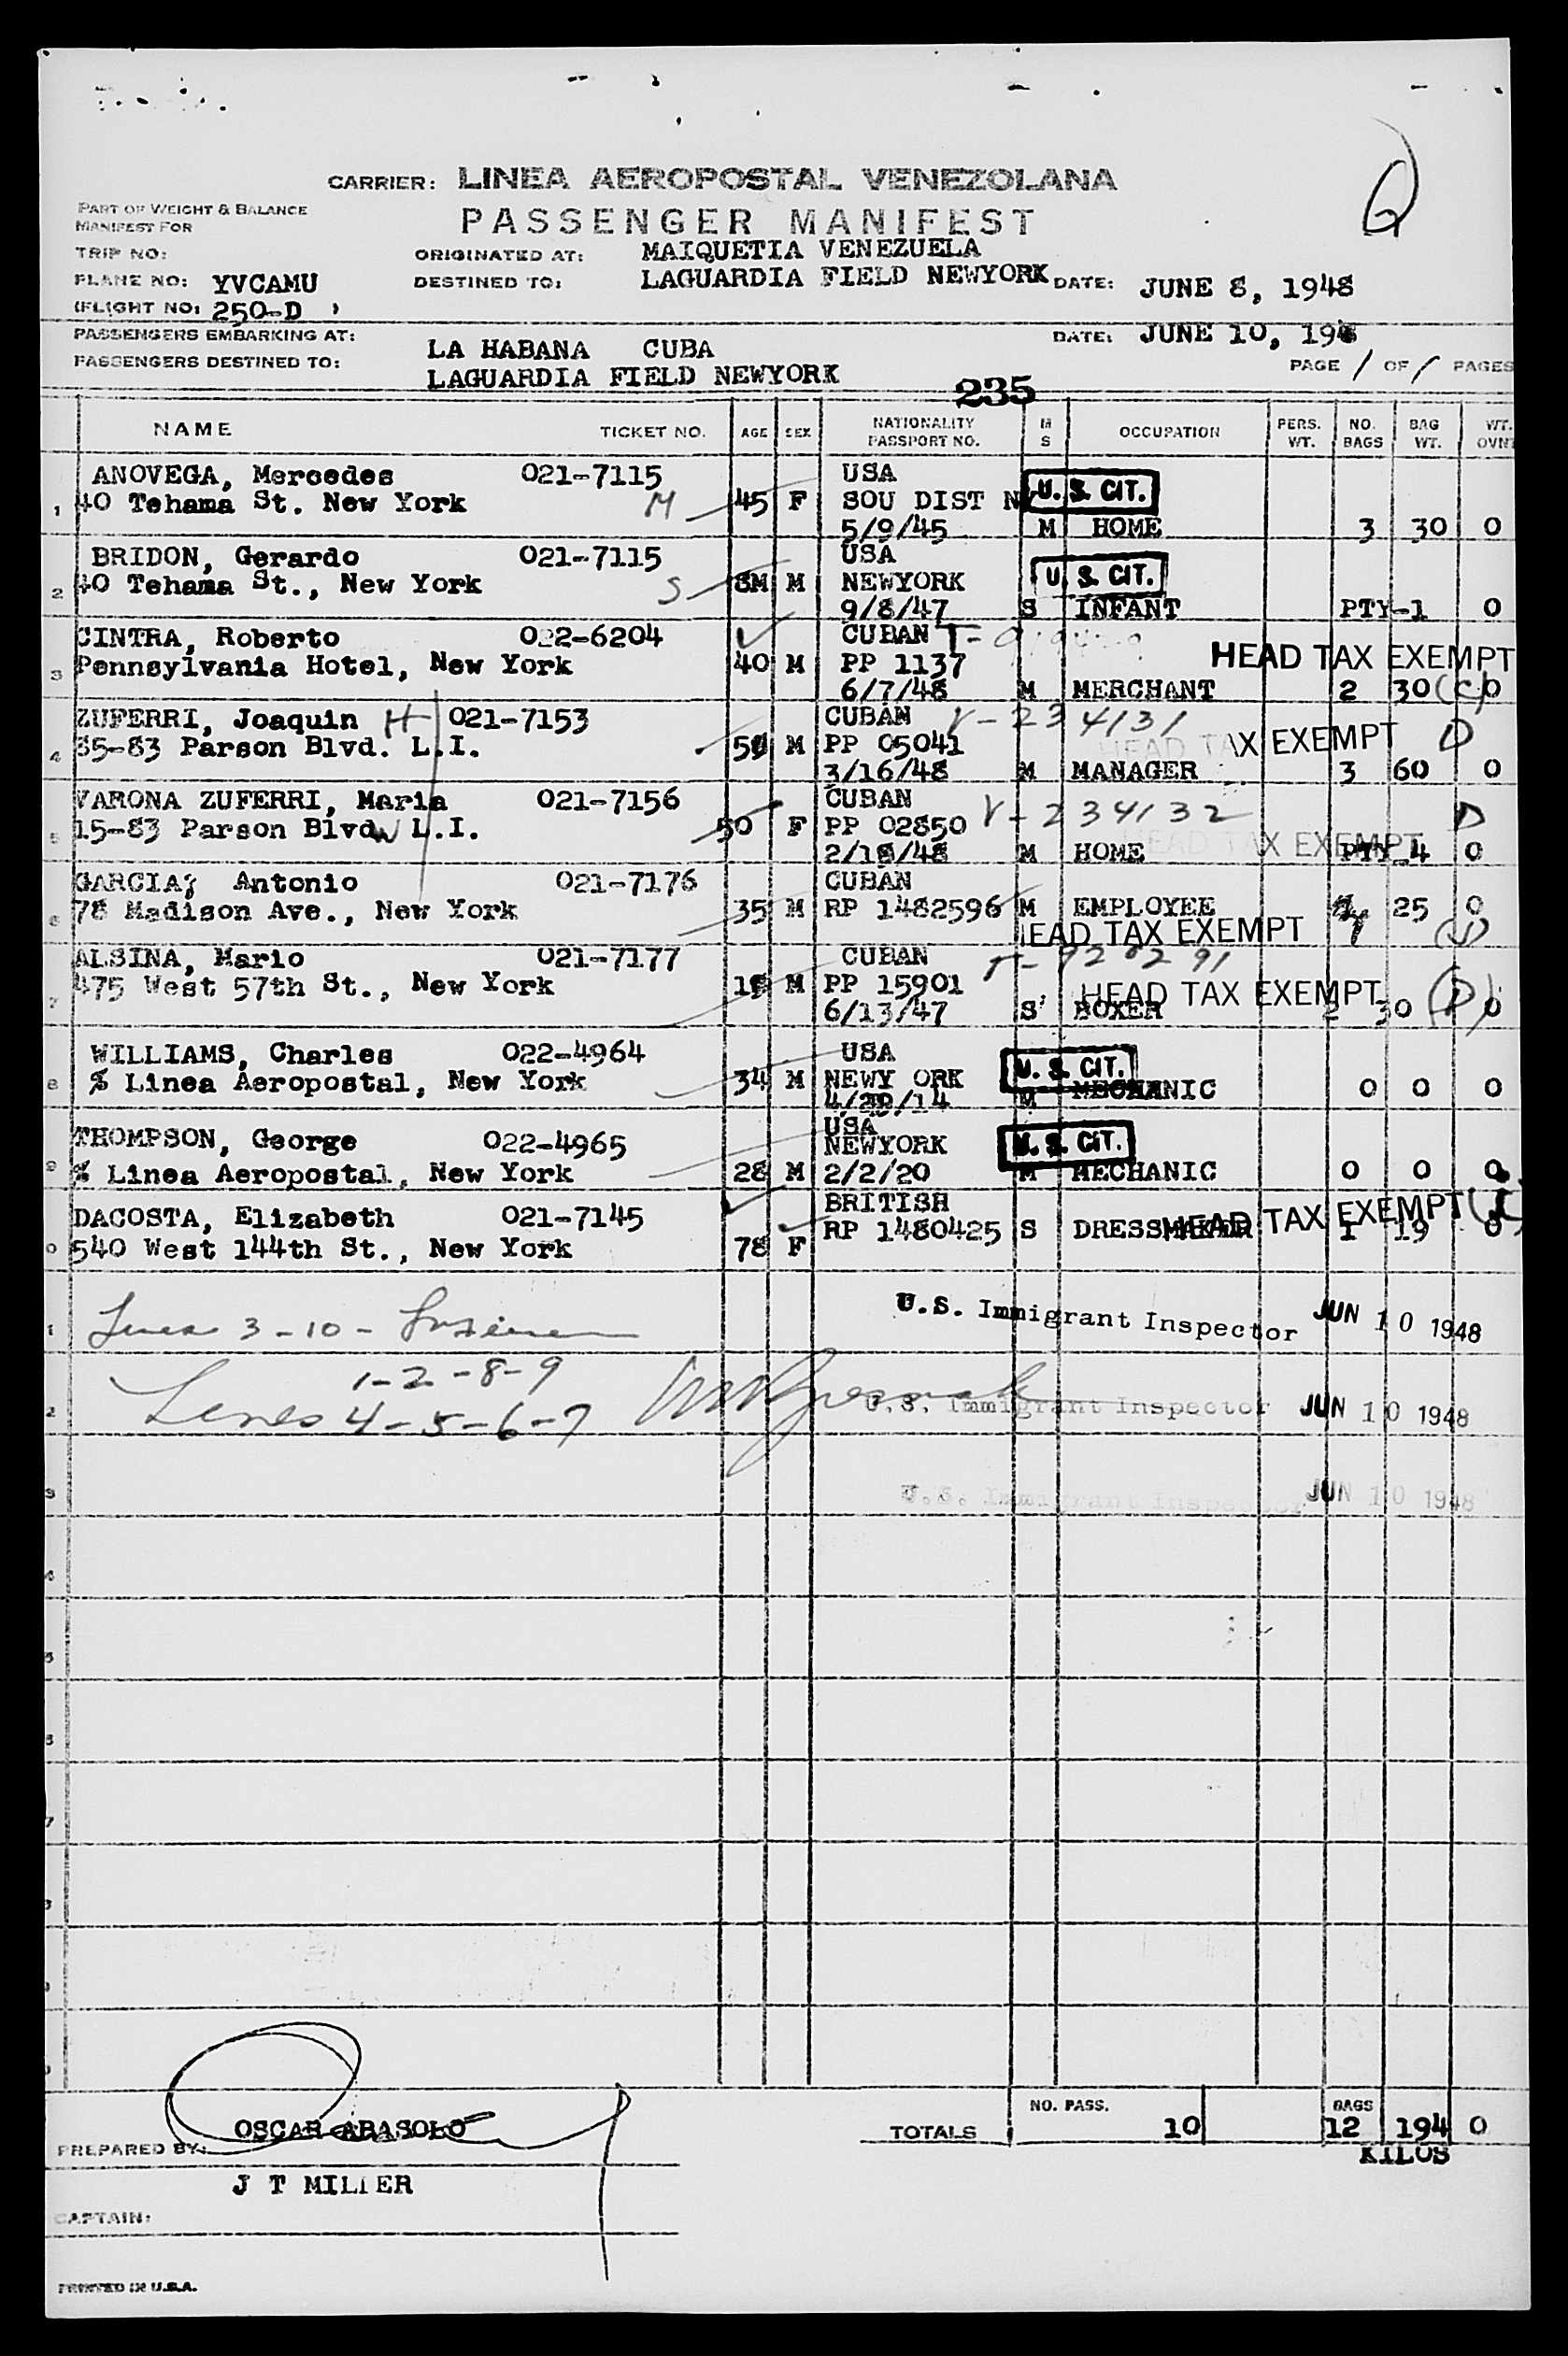 Q
CARRIER: LINEA AEROPOSTAL VENEZOLANA
PART OF WEIGHT & BALANCE
MANIFEST FOR
PASSENGER MANIFEST
TRIP NO:
ORIGINATED AT: MAIQUETIA VENEZUELA
PLANE NO: YVCAMU
DESTINED TO: LAGUARDIA FIELD NEWYORK DATE: JUNE 8, 1948
(FLIGHT NO: 250-D
PASSENGERS EMBARKING AT: LA HABANA CUBA DATE: JUNE 10, 194
PASSENGERS DESTINED TO: LAGUARDIA FIELD NEWYORK
PAGE 1 OF 1 PAGES
235
NAME TICKET NO. AGE SEX NATIONALITY PASSPORT NO. M S OCCUPATION PERS. WT. NO. BAGS BAG WT. WT.
ANOVEGA, Mercedes 021-7115 USA
1 40 Tehama St. New York M 45 F SOU DIST N U.S. CIT.
5/9/45 M HOME 3 30 0
BRIDON, Gerardo 021-7115 USA
2 40 Tehama St., New York S 8M M NEWYORK U.S. CIT.
9/8/47 S INFANT PTY-1 0
CINTRA, Roberto 022-6204 CUBAN
3 Pennsylvania Hotel, New York 40 M PP 1137 HEAD TAX EXEMPT
6/7/48 M MERCHANT 2 30 (C) 0
ZUFERRI, Joaquin H 021-7153 CUBAN V-234131
4 35-83 Parson Blvd. L.I. M PP 05041 HEAD TAX EXEMPT D
3/16/48 M MANAGER 3 60 0
VARONA ZUFERRI, Maria 021-7156 CUBAN V-234132 D
5 15-83 Parson Blvd. W L.I. 50 F PP 02850 HEAD TAX EXEMPT
2/18/48 M HOME PTY 4 0
GARCIA, Antonio 021-7176 CUBAN
6 78 Madison Ave., New York 35 M RP 1482596 M EMPLOYEE 25 0
HEAD TAX EXEMPT
ALSINA, Mario 021-7177 CUBAN
7 475 West 57th St., New York M PP 15901 HEAD TAX EXEMPT (D)
6/13/47 S BOXER 2 30 0
WILLIAMS, Charles 022-4964 USA
8 % Linea Aeropostal, New York 34 M NEWY ORK U.S. CIT. MECHANIC 0 0 0
M
THOMPSON, George 022-4965 USA
NEWYORK U.S. CIT.
9 % Linea Aeropostal, New York 28 M 2/2/20 M MECHANIC 0 0 0
DACOSTA, Elizabeth 021-7145 BRITISH
RP 1480425 S DRESSMAKER HEAD TAX EXEMPT 1 19 0
0 540 West 144th St., New York 78 F
3-10-
U.S. Immigrant Inspector JUN 10 1948
1-2-8-9
Lines 4-5-6-7
U.S. Immigrant Inspector JUN 10 1948
U.S. Immigrant Inspector JUN 10 1948
NO. PASS. BAGS
TOTALS 10 12 194 0
KILOS
PREPARED BY: OSCAR ARASOLO
J T MILLER
CAPTAIN:
PRINTED IN U.S.A.